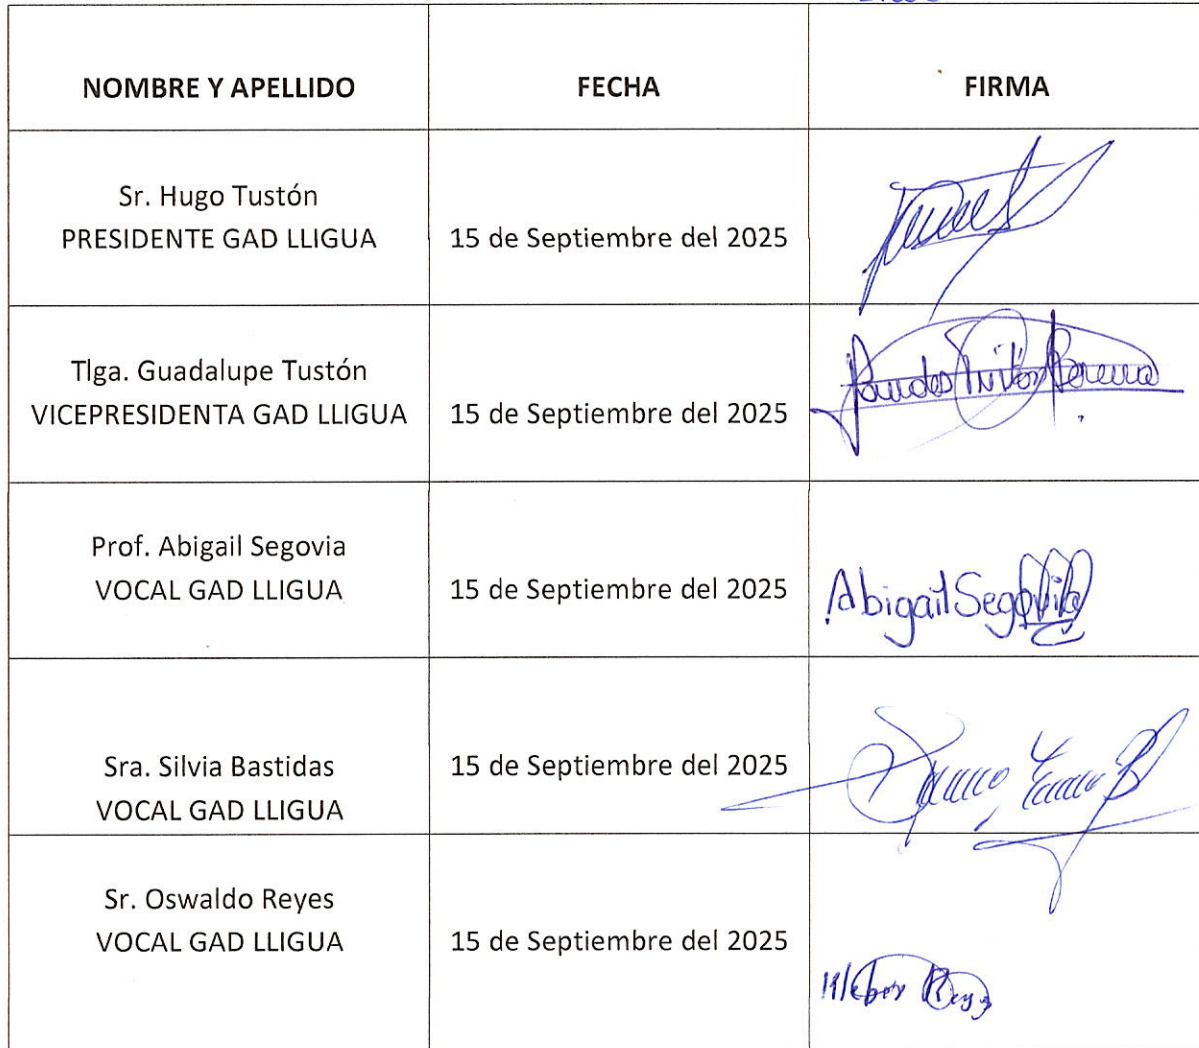 NOMBRE Y APELLIDO FECHA FIRMA
Sr. Hugo Tustón
PRESIDENTE GAD LLIGUA 15 de Septiembre del 2025
Tlga. Guadalupe Tustón
VICEPRESIDENTA GAD LLIGUA 15 de Septiembre del 2025
Prof. Abigail Segovia
VOCAL GAD LLIGUA 15 de Septiembre del 2025 Abigail Segovia
Sra. Silvia Bastidas 15 de Septiembre del 2025
VOCAL GAD LLIGUA
Sr. Oswaldo Reyes
VOCAL GAD LLIGUA 15 de Septiembre del 2025